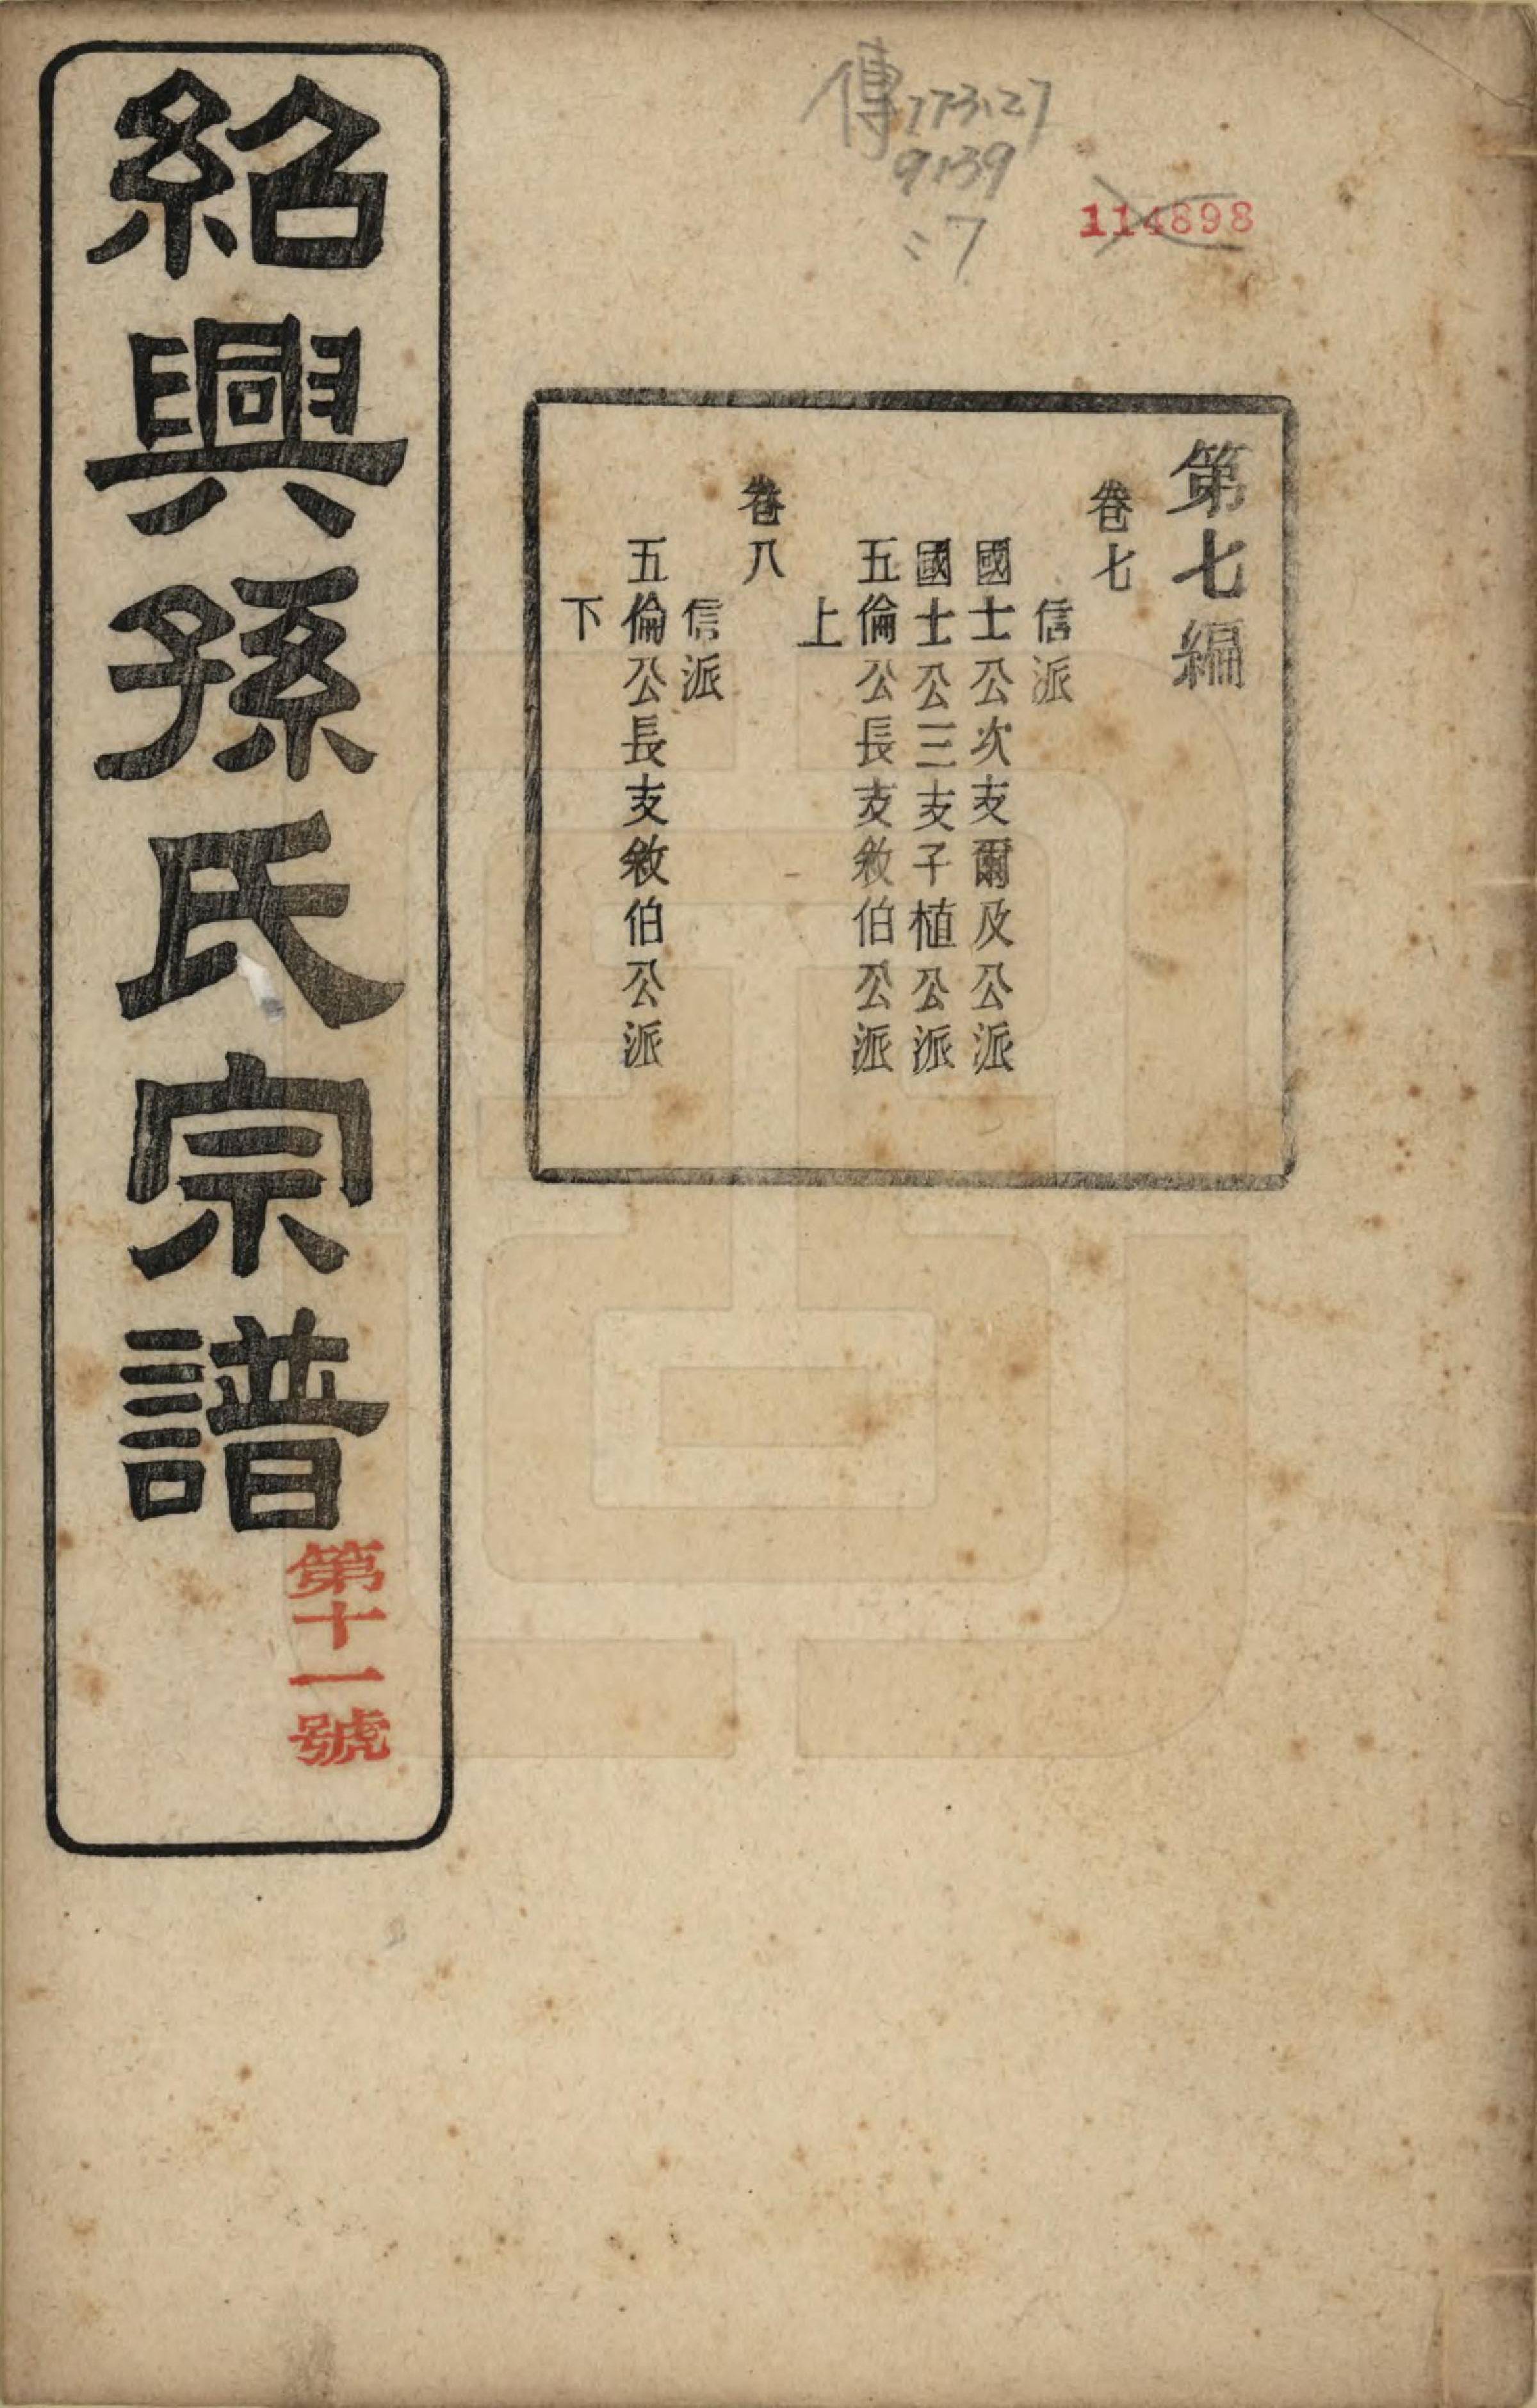 傳773.27
9139
:7
114898
第七編
卷七
信派
國士公次支爾及公派
國士公三支子植公派
五倫公長支敘伯公派
上
卷八
信派
五倫公長支敘伯公派
下
紹興孫氏宗譜
第十一號